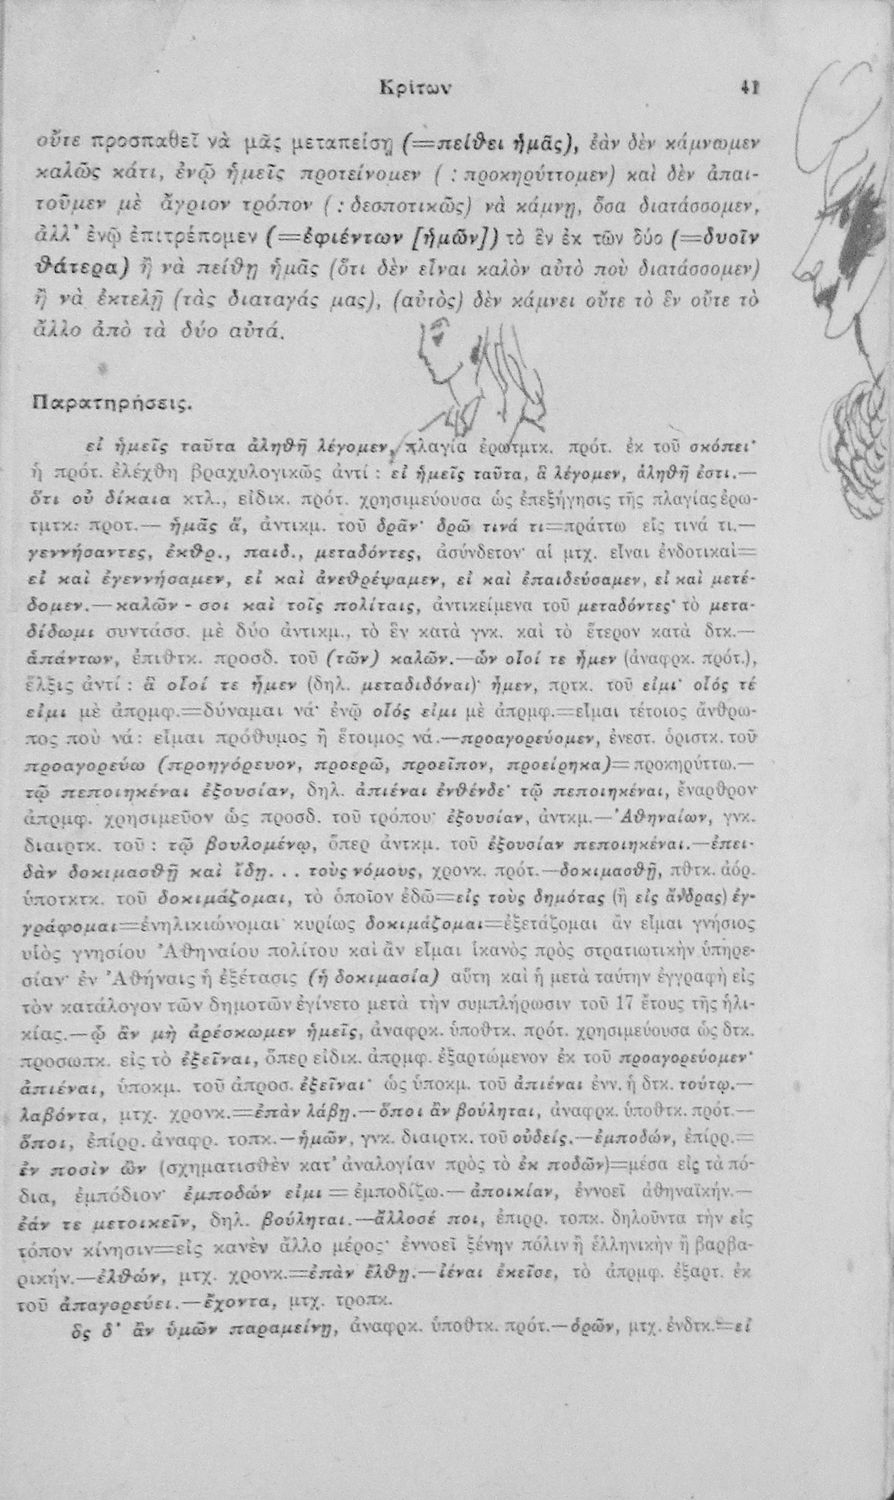 Κρίτων 41
οὔτε προσπαθεῖ νὰ μᾶς μεταπείσῃ (=πείθει ἡμᾶς), ἐὰν δὲν κάμνωμεν
καλῶς κάτι, ἐνῷ ἡμεῖς προτείνομεν ( : προκηρύττομεν) καὶ δὲν ἀπαι-
τοῦμεν μὲ ἄγριον τρόπον ( : δεσποτικῶς) νὰ κάμνῃ, ὅσα διατάσσομεν,
ἀλλ' ἐνῷ ἐπιτρέπομεν (=ἐφιέντων [ἡμῶν]) τὸ ἓν ἐκ τῶν δύο (=δυοῖν
θάτερα) ἢ νὰ πείθῃ ἡμᾶς (ὅτι δὲν εἶναι καλὸν αὐτὸ ποὺ διατάσσομεν)
ἢ νὰ ἐκτελῇ (τὰς διαταγάς μας), (αὐτὸς) δὲν κάμνει οὔτε τὸ ἓν οὔτε τὸ
ἄλλο ἀπὸ τὰ δύο αὐτά.
Παρατηρήσεις.
εἰ ἡμεῖς ταῦτα ἀληθῆ λέγομεν, πλαγία ἐρωτμτκ. πρότ. ἐκ τοῦ σκόπει·
ἡ πρότ. ἐλέχθη βραχυλογικῶς ἀντί : εἰ ἡμεῖς ταῦτα, ἃ λέγομεν, ἀληθῆ ἐστι.—
ὅτι οὐ δίκαια κτλ., εἰδικ. πρότ. χρησιμεύουσα ὡς ἐπεξήγησις τῆς πλαγίας ἐρω-
τμτκ. προτ.— ἡμᾶς ἅ, ἀντικμ. τοῦ δρᾶν· δρῶ τινά τι=πράττω εἰς τινά τι.—
γεννήσαντες, ἐκθρ., παιδ., μεταδόντες, ἀσύνδετον· αἱ μτχ. εἶναι ἐνδοτικαὶ=
εἰ καὶ ἐγεννήσαμεν, εἰ καὶ ἀνεθρέψαμεν, εἰ καὶ ἐπαιδεύσαμεν, εἰ καὶ μετέ-
δομεν.—καλῶν - σοι καὶ τοῖς πολίταις, ἀντικείμενα τοῦ μεταδόντες· τὸ μετα-
δίδωμι συντάσσ. μὲ δύο ἀντικμ., τὸ ἓν κατὰ γνκ. καὶ τὸ ἕτερον κατὰ δτκ.—
ἁπάντων, ἐπιθτκ. προσδ. τοῦ (τῶν) καλῶν.—ὧν οἷοί τε ἦμεν (ἀναφρκ. πρότ.),
ἕλξις ἀντί : ἃ οἷοί τε ἦμεν (δηλ. μεταδιδόναι)· ἦμεν, πρτκ. τοῦ εἰμι· οἷός τέ
εἰμι μὲ ἀπρμφ.=δύναμαι νά· ἐνῷ οἷός εἰμι μὲ ἀπρμφ.=εἶμαι τέτοιος ἄνθρω-
πος ποὺ νά: εἶμαι πρόθυμος ἢ ἕτοιμος νά.—προαγορεύομεν, ἐνεστ. ὁριστκ. τοῦ
προαγορεύω (προηγόρευον, προερῶ, προεῖπον, προείρηκα)=προκηρύττω.—
τῷ πεποιηκέναι ἐξουσίαν, δηλ. ἀπιέναι ἐνθένδε· τῷ πεποιηκέναι, ἔναρθρον
ἀπρμφ. χρησιμεῦον ὡς προσδ. τοῦ τρόπου· ἐξουσίαν, ἀντκμ.—Ἀθηναίων, γνκ.
διαιρτκ. τοῦ : τῷ βουλομένῳ, ὅπερ ἀντκμ. τοῦ ἐξουσίαν πεποιηκέναι.—ἐπει-
δὰν δοκιμασθῇ καὶ ἴδῃ. . . τοὺς νόμους, χρονκ. πρότ.—δοκιμασθῇ, πθτκ. ἀόρ.
ὑποτκτκ. τοῦ δοκιμάζομαι, τὸ ὁποῖον ἐδῶ=εἰς τοὺς δημότας (ἢ εἰς ἄνδρας) ἐγ-
γράφομαι=ἐνηλικιώνομαι· κυρίως δοκιμάζομαι=ἐξετάζομαι ἂν εἶμαι γνήσιος
υἱὸς γνησίου Ἀθηναίου πολίτου καὶ ἂν εἶμαι ἱκανὸς πρὸς στρατιωτικὴν ὑπηρε-
σίαν· ἐν Ἀθήναις ἡ ἐξέτασις (ἡ δοκιμασία) αὕτη καὶ ἡ μετὰ ταύτην ἐγγραφὴ εἰς
τὸν κατάλογον τῶν δημοτῶν ἐγίνετο μετὰ τὴν συμπλήρωσιν τοῦ 17 ἔτους τῆς ἡλι-
κίας.—ᾧ ἂν μὴ ἀρέσκωμεν ἡμεῖς, ἀναφρκ. ὑποθτκ. πρότ. χρησιμεύουσα ὡς δτκ.
προσωπκ. εἰς τὸ ἐξεῖναι, ὅπερ εἰδικ. ἀπρμφ. ἐξαρτώμενον ἐκ τοῦ προαγορεύομεν·
ἀπιέναι, ὑποκμ. τοῦ ἀπροσ. ἐξεῖναι· ὡς ὑποκμ. τοῦ ἀπιέναι ἐνν. ἡ δτκ. τούτῳ.—
λαβόντα, μτχ. χρονκ.=ἐπὰν λάβῃ.—ὅποι ἂν βούληται, ἀναφρκ. ὑποθτκ. πρότ.—
ὅποι, ἐπίρρ. ἀναφρ. τοπκ.—ἡμῶν, γνκ. διαιρτκ. τοῦ οὐδείς.—ἐμποδών, ἐπίρρ.=
ἐν ποσὶν ὢν (σχηματισθὲν κατ' ἀναλογίαν πρὸς τὸ ἐκ ποδῶν)=μέσα εἰς τὰ πό-
δια, ἐμπόδιον· ἐμποδών εἰμι = ἐμποδίζω.— ἀποικίαν, ἐννοεῖ ἀθηναϊκήν.—
ἐάν τε μετοικεῖν, δηλ. βούληται.—ἄλλοσέ ποι, ἐπιρρ. τοπκ. δηλοῦντα τὴν εἰς
τόπον κίνησιν=εἰς κανὲν ἄλλο μέρος· ἐννοεῖ ξένην πόλιν ἢ ἑλληνικὴν ἢ βαρβα-
ρικήν.—ἐλθών, μτχ. χρονκ.=ἐπὰν ἔλθῃ.—ἰέναι ἐκεῖσε, τὸ ἀπρμφ. ἐξαρτ. ἐκ
τοῦ ἀπαγορεύει.—ἔχοντα, μτχ. τροπκ.
ὃς δ' ἂν ὑμῶν παραμείνῃ, ἀναφρκ. ὑποθτκ. πρότ.—ὁρῶν, μτχ. ἐνδτκ.=εἰ